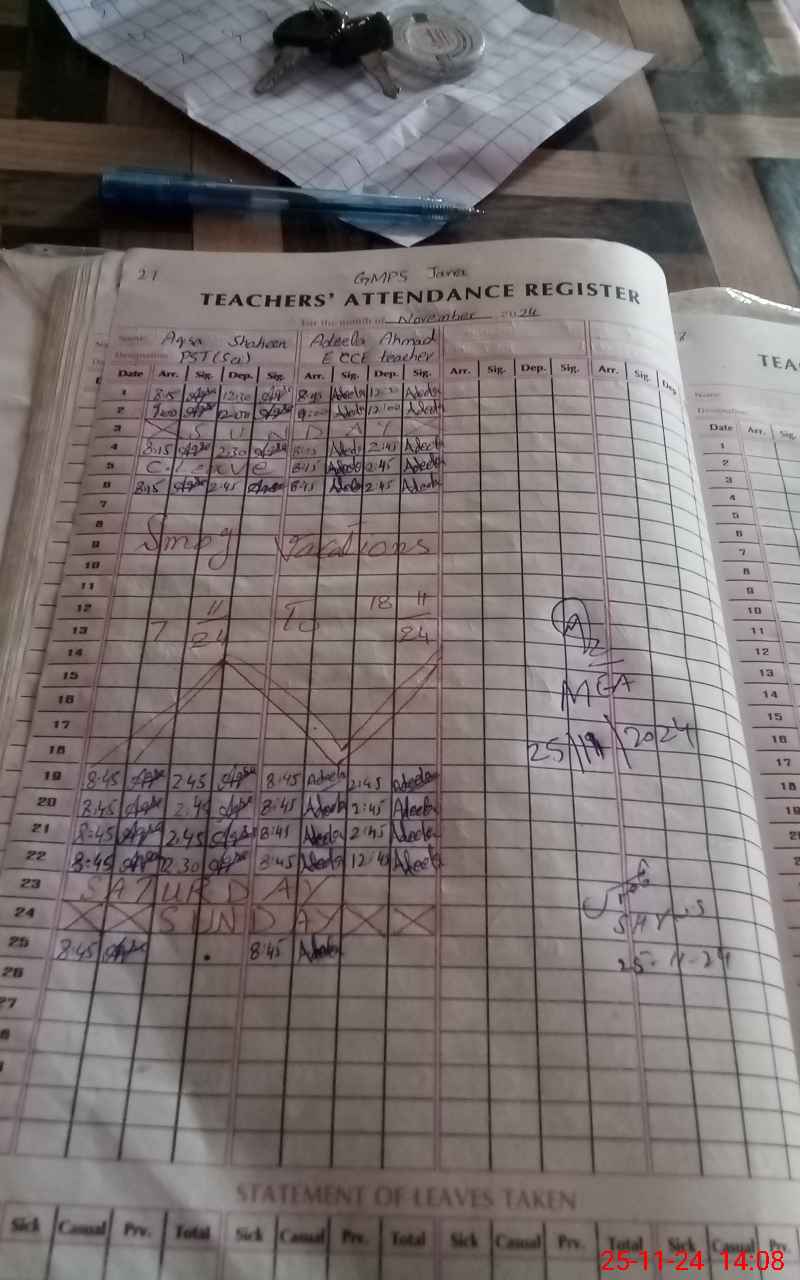 21 GMPS
TEACHERS' ATTENDANCE REGISTER
For the month of November 2024
Name: Aqsa Shaheen Adeela Ahmad
Designation: PST (Sci) ECCE teacher
Date Arr. Sig. Dep. Sig. Arr. Sig. Dep. Sig. Arr. Sig. Dep. Sig. Arr. Sig. Dep
1 8:15 Aqsa 12:30 Aqsa Adeela Adeela
2 9:00 Aqsa 12:00 Aqsa 9:00 Adeela 12:00 Adeela
3 X S U N D A Y X
4 8:15 Aqsa 2:30 Aqsa 8:15 Adeela 2:45 Adeela
5 C. Leave 8:15 Adeela 2:45 Adeela
6 8:15 Aqsa 2:45 Aqsa 8:45 Adeela 2:45 Adeela
7
8
9 Smog Vacations
10
11
12
13 7 11/24 To 18 11/24
14
15
16
17
18
19 8:45 Aqsa 2:45 Aqsa 8:45 Adeela 2:45 Adeela
20 8:45 Aqsa 2:45 Aqsa 8:45 Adeela 2:45 Adeela
21 8:45 Aqsa 2:45 Aqsa 8:45 Adeela 2:45 Adeela
22 8:45 Aqsa 12:30 Aqsa 8:45 Adeela Adeela
23 SATURDAY
24 X X SUNDAY X X
25 8:45 Aqsa 8:45 Adeela
26
27
MEA
25/11/2024
25-11-24
STATEMENT OF LEAVES TAKEN
Sick Casual Prv. Total Sick Casual Prv. Total Sick Casual Prv. Total Sick Casual Prv
TEA
Name
Designation
Date Arr. Sig.
1
2
3
4
5
6
7
8
9
10
11
12
13
14
15
16
17
18
19
25-11-24 14:08